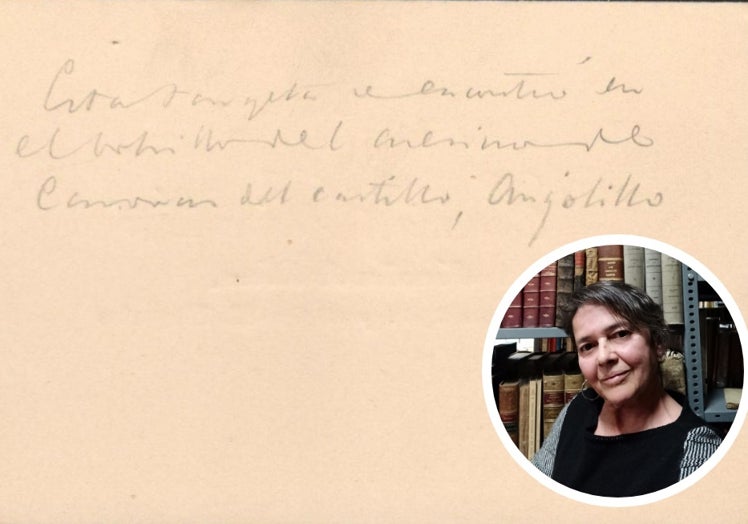 Esta tarjeta se encontró en
el bolsillo del asesino de
Canovas del Castillo, Angiolillo